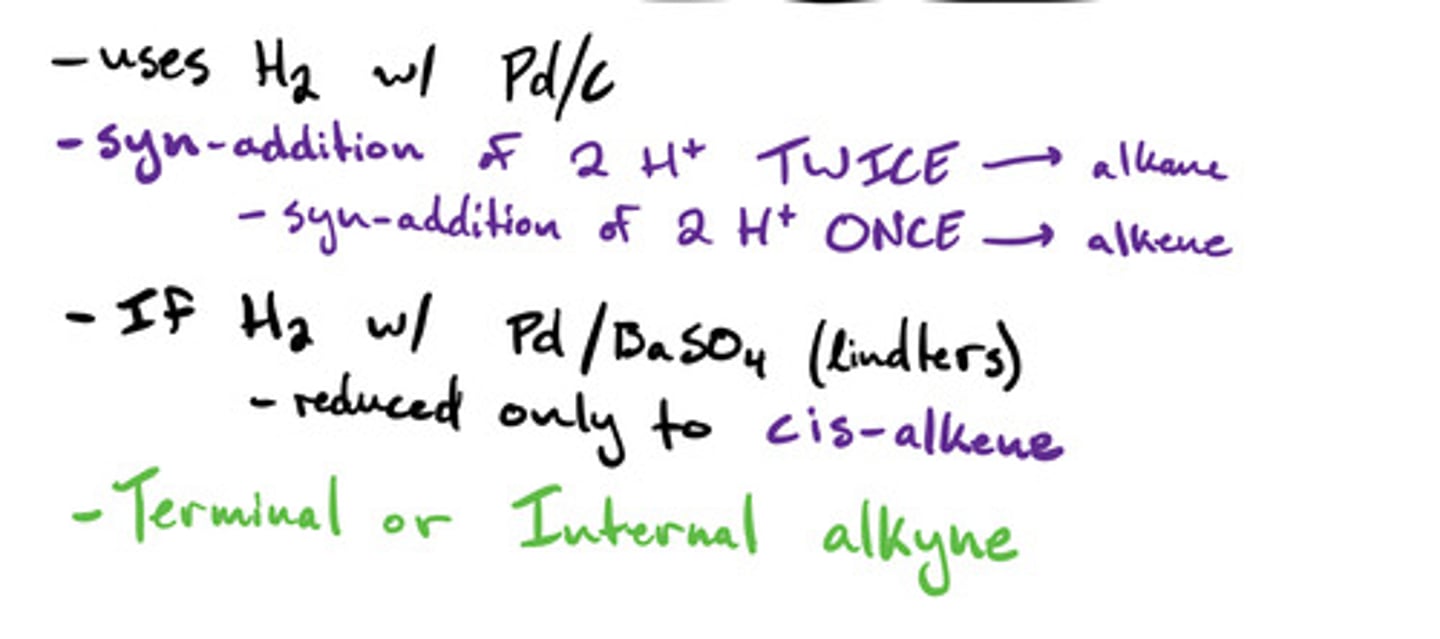 - uses H₂ w/ Pd/C
- syn-addition of 2 H⁺ TWICE → alkane
- syn-addition of 2 H⁺ ONCE → alkene
- If H₂ w/ Pd/BaSO₄ (lindlers)
- reduced only to cis-alkene
- Terminal or Internal alkyne